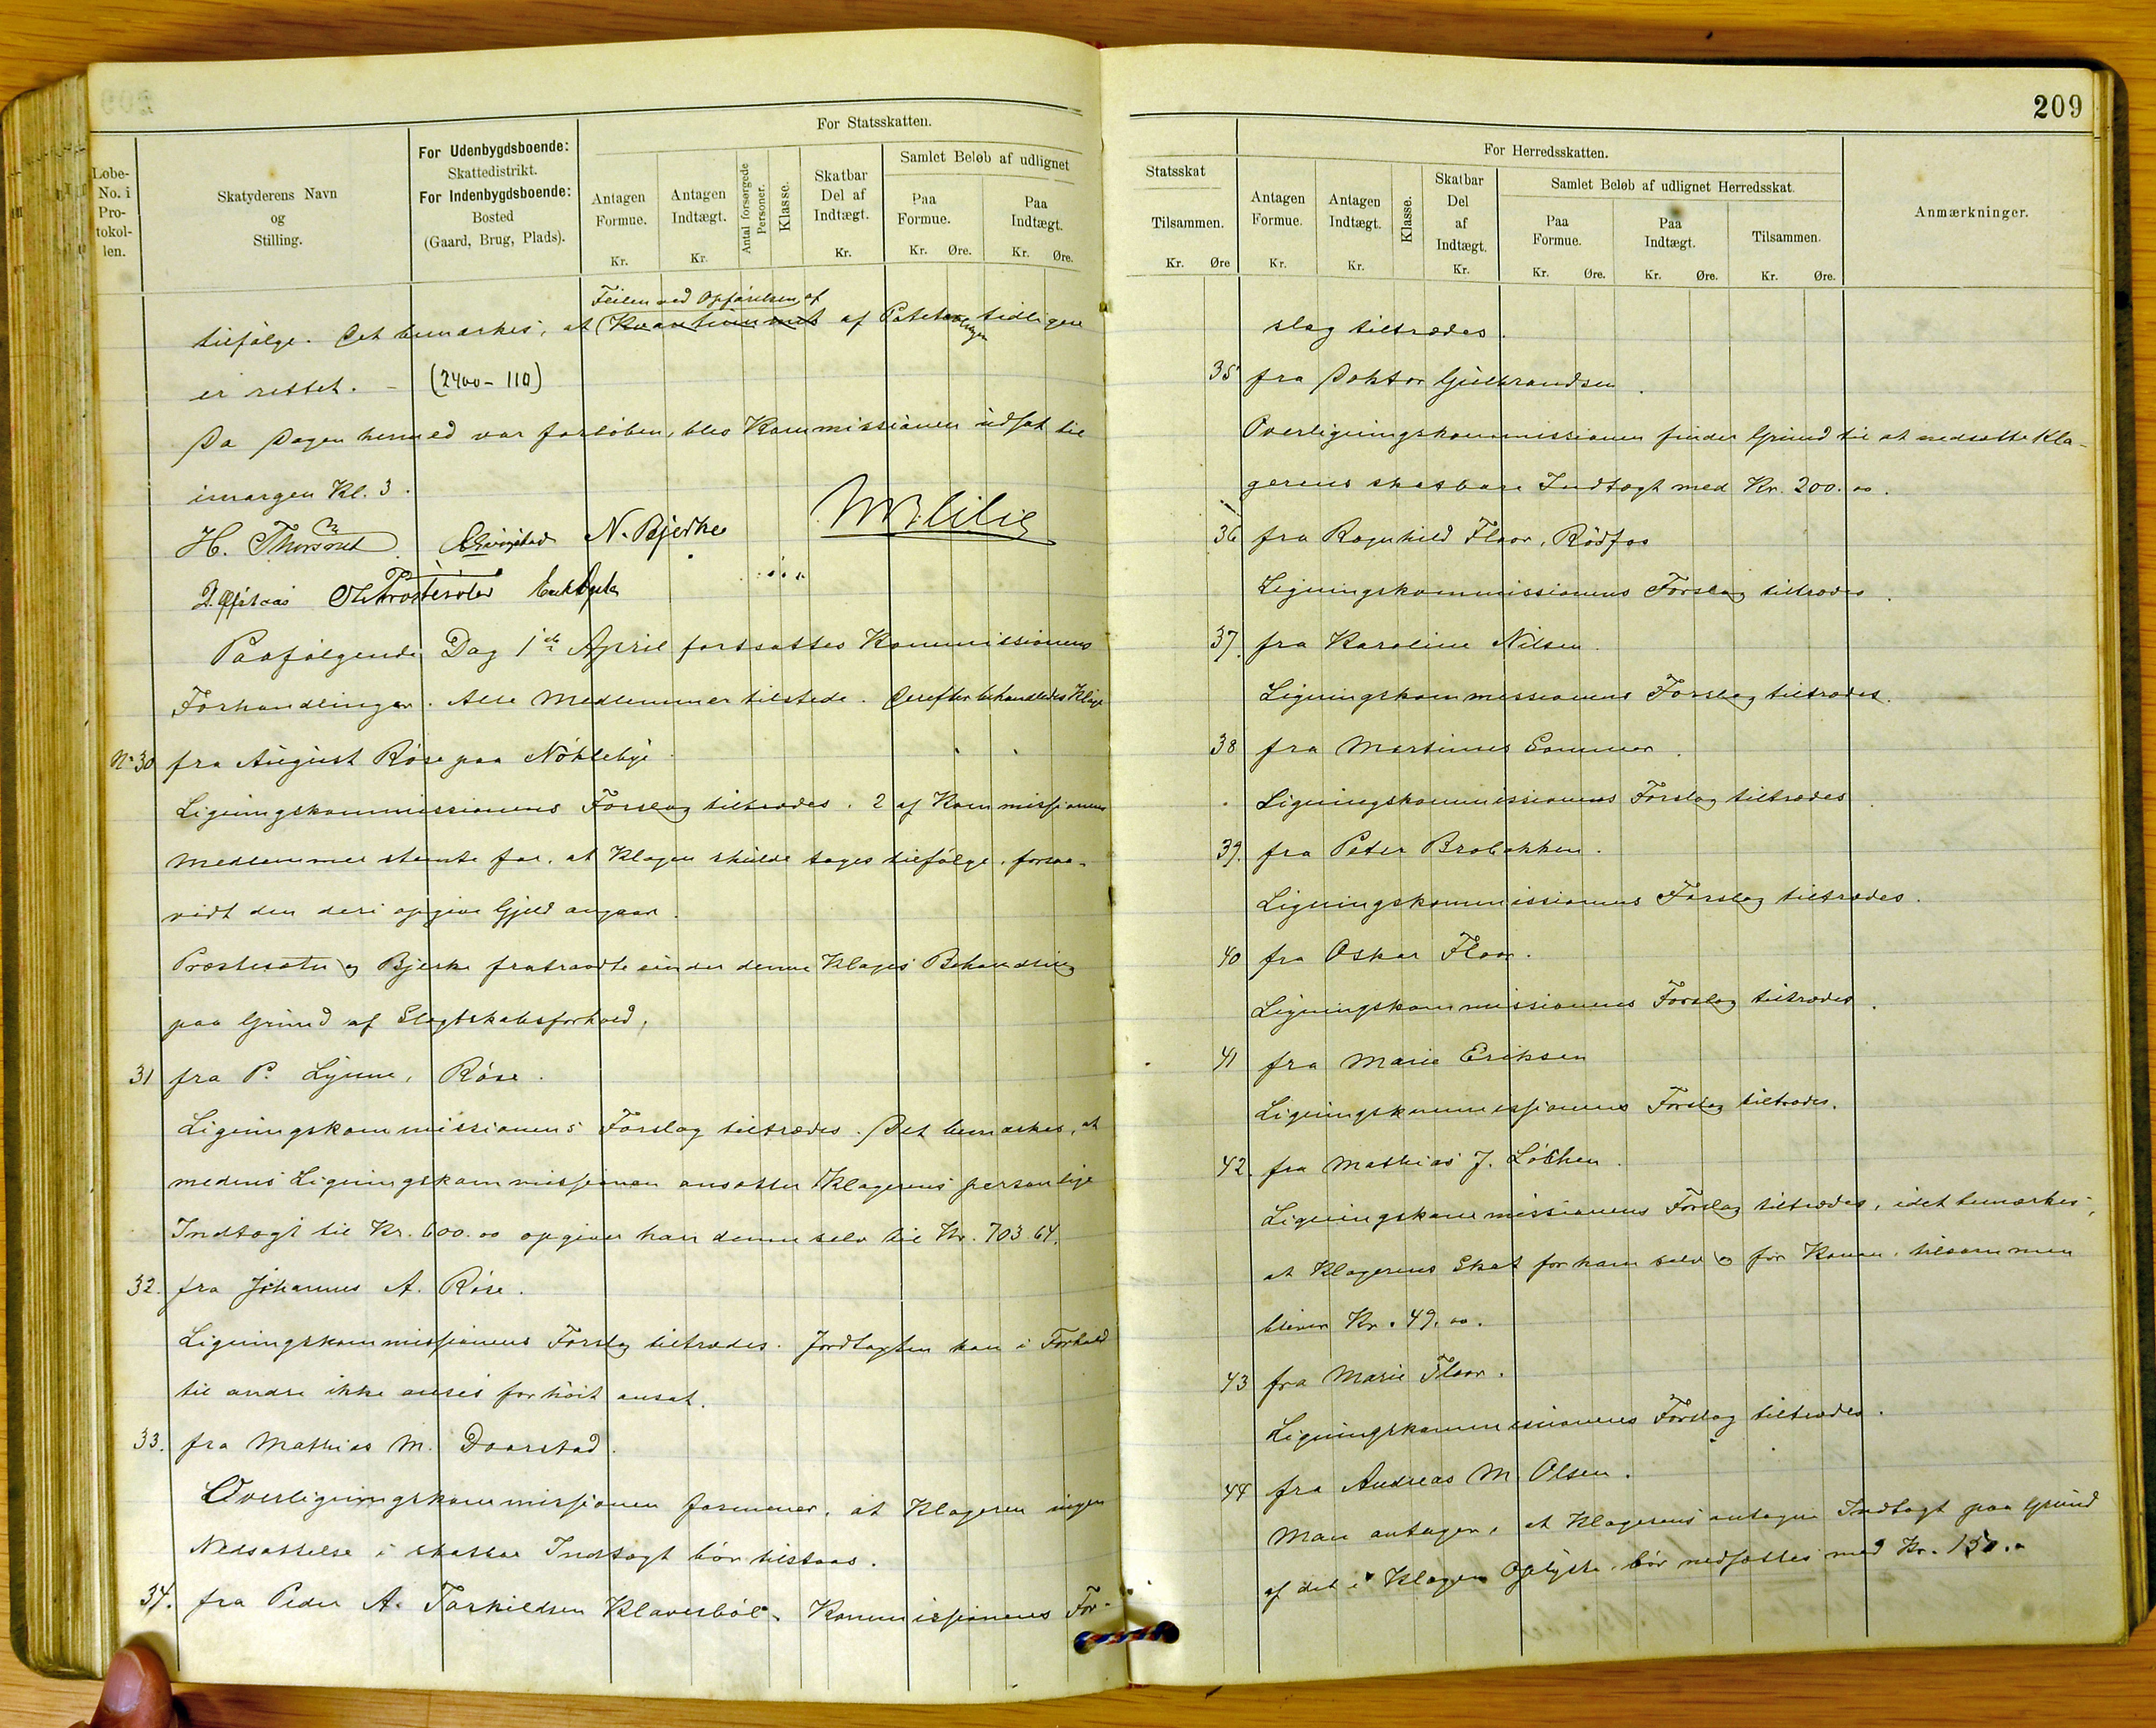 209
Løbe-
No. i
Pro-
tokol-
len.
Skatyderens Navn
og
Stilling.
For Udenbygdsboende:
Skattedistrikt.
For Indenbygdsboende:
Bosted
(Gaard, Brug, Plads).
For Statsskatten.
Antagen
Formue.
Kr.
Antagen
Indtægt.
Kr.
Antal forsørgede
Personer.
Klasse.
Skatbar
Del af
Indtægt.
Kr.
Samlet Beløb af udlignet
Paa
Formue.
Kr. Øre.
Paa
Indtægt.
Kr. Øre.
Feilen ved Opførelsen af
tilfølge. Det bemærkes, at Kvantummet af Potet tidligere
er rettet. - (2400 - 110)
Da Dagen hermed var forløben, blev Kommissionen udsat til
imorgen Kl. 3.
H. Thorsrud N. Bjerke
Paafølgende Dag 1ste April fortsattes Kommissionens
Forhandlinger. Alle Medlemmer tilstede. Derefter behandledes Klage
No 30 fra August Røse paa Nøklebye
Ligningskommissionens Forslag tiltrædes. 2 af Kommissionens
Medlemmer stemte for, at Klagen skulde tages tilfølge, forsaa-
vidt den deri opgivne Gjeld angaar.
Præstesæter og Bjerke fratraadte under denne Klages Behandling
paa Grund af Slegtskabsforhold.
31 fra P. Lynne, Røse.
Ligningskommissionens Forslag tiltrædes. Det bemærkes, at
medens Ligningskommissionen ansætter Klagerens personlige
Indtægt til Kr. 600.00 opgiver han denne selv til Kr. 703.64.
32. fra Johannes A. Røse.
Ligningskommissionens Forslag tiltrædes. Jordtaxten kan i Forhold
til andre ikke ansees for høit ansat.
33. fra Mathias M. Daarstad.
Overligningskommissionen formener, at Klageren ingen
Nedsættelse i skatbar Indtægt bør tilstaaes.
34. fra Peder A. Torkildsen Klavesböl. Kommissionens For-
209
Statsskat
Tilsammen.
Kr. Øre
For Herredsskatten.
Antagen
Formue.
Kr.
Antagen
Indtægt.
Kr.
Klasse.
Skatbar
Del
af
Indtægt.
Kr.
Samlet Beløb af udlignet Herredsskat.
Paa
Formue.
Kr. Øre.
Paa
Indtægt.
Kr. Øre.
Tilsammen.
Kr. Øre.
Anmærkninger.
slag tiltrædes.
35 fra Doktor Gulbrandsen.
Overligningskommissionen finder Grund til at nedsætte Kla-
gerens skatbare Indtægt med Kr. 200.00.
36 fra Ragnhild Floor, Rødfos
Ligningskommissionens Forslag tiltrædes.
37. fra Karoline Nilsen.
Ligningskommissionens Forslag tiltrædes.
38 fra Martinus Sommer.
Ligningskommissionens Forslag tiltrædes.
39. fra Peter Brobakken.
Ligningskommissionens Forslag tiltrædes.
40 fra Oskar Floor.
Ligningskommissionens Forslag tiltrædes.
41 fra Marie Eriksen
Ligningskommissionens Forslag tiltrædes.
42. fra Mathias J. Løkken.
Ligningskommissionens Forslag tiltrædes, idet bemærkes,
at Klagerens Skat for ham selv og for Konen, tilsammen
bliver Kr. 49.00.
43 fra Marie Floor.
Ligningskommissionens Forslag tiltrædes.
44 fra Andreas M. Olsen.
Man antager, at Klagerens antagne Indtægt paa Grund
af det i Klagen Oplyste, bør nedsættes med Kr. 150.00